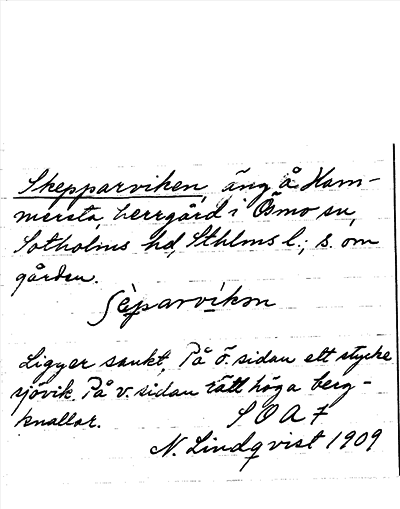 Skepparviken, äng å Ham-
mersta, herrgård i Ösmo sn,
Sotholms hd, Sthlms l.; s. om
gården.
ʃèparvìkən
Ligger sankt. På ö. sidan ett stycke
sjövik. På v. sidan rätt höga berg-
knallar.
S O A 7
N. Lindqvist 1909